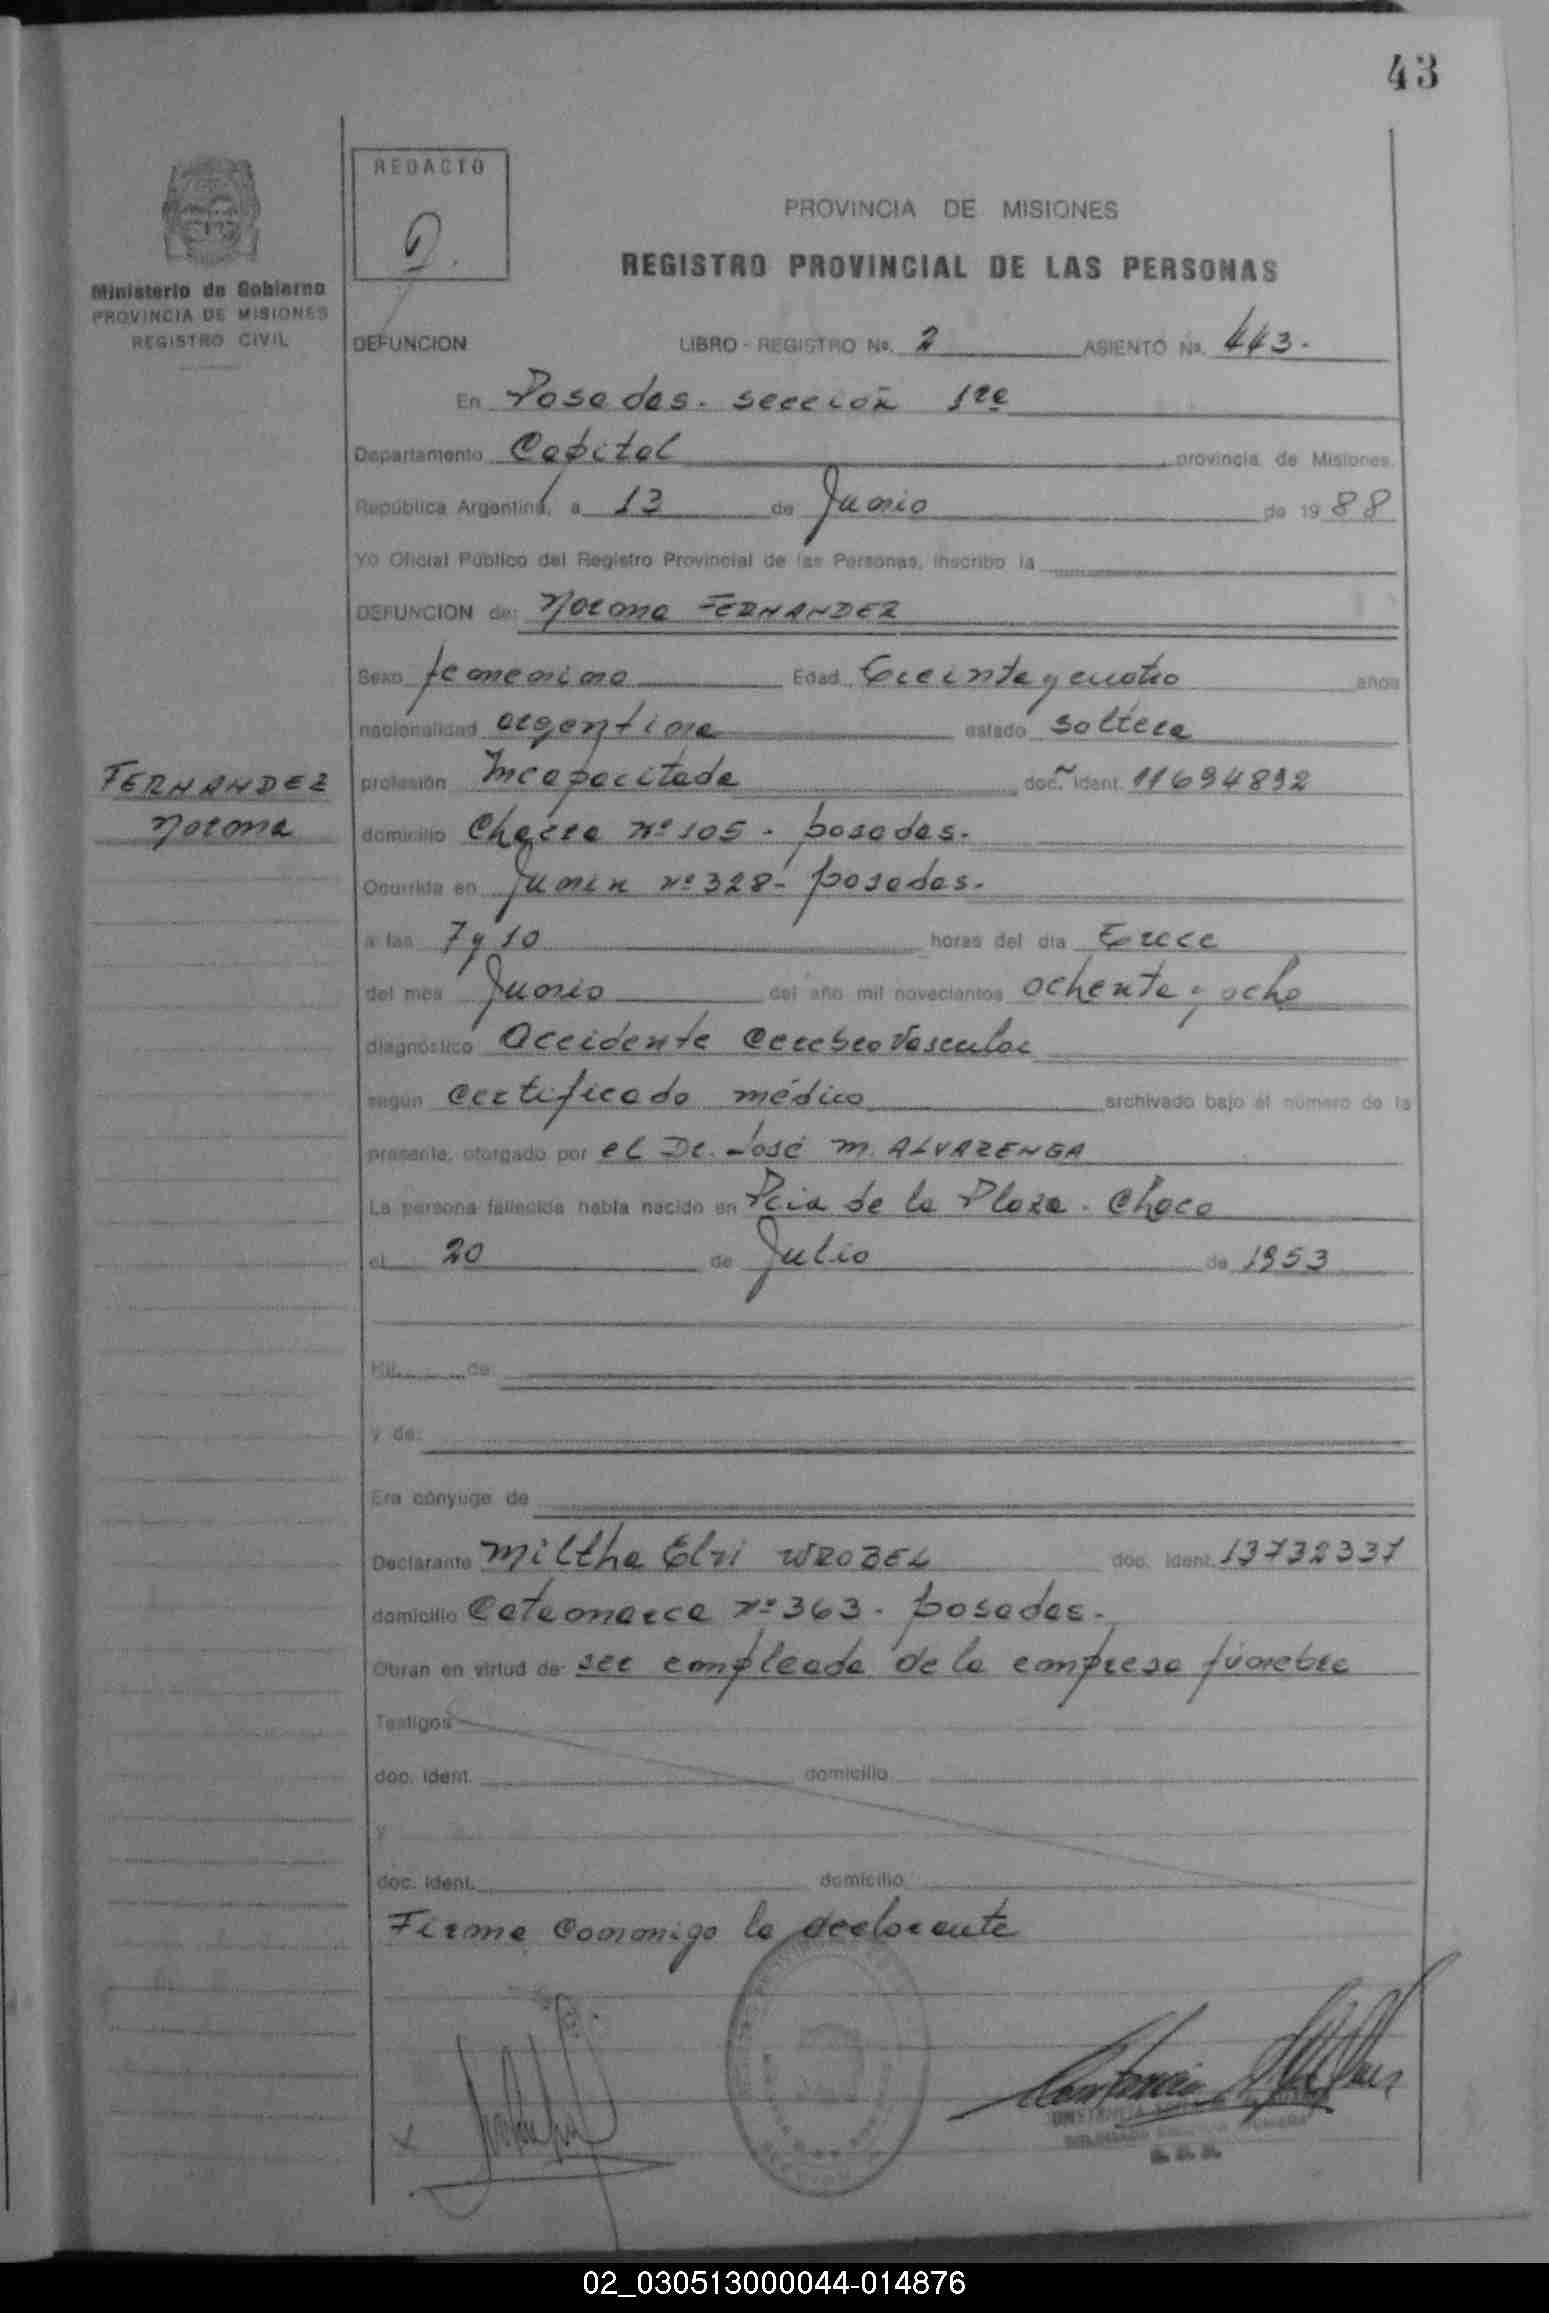 43
REDACTO
PROVINCIA DE MISIONES
REGISTRO PROVINCIAL DE LAS PERSONAS
Ministerio de Gobierno
PROVINCIA DE MISIONES
REGISTRO CIVIL
DEFUNCION LIBRO - REGISTRO No. 2 ASIENTO No. 443.
En Posadas. sección 1ra
Departamento Capital, provincia de Misiones.
República Argentina, a 13 de Junio de 1988
Yo Oficial Público del Registro Provincial de las Personas, inscribo la
DEFUNCION de: Norma FERNANDEZ
Sexo femenino Edad treinta y cuatro años
nacionalidad argentina estado soltera
FERNANDEZ
Norma
profesión Incapacitada doc. ident. 11694892
domicilio Chacra nº 105 - posadas.
Ocurrida en Junín nº 328 - posadas.
a las 7 y 10 horas del día trece
del mes Junio del año mil novecientos ochenta y ocho
diagnóstico Accidente Cerebro Vascular
según certificado médico archivado bajo el número de la
presente, otorgado por el Dr. José M. ALVARENGA
La persona fallecida había nacido en Pcia de la Plaza - Chaco
el 20 de Julio de 1953
Hij de:
y de:
Era cónyuge de
Declarante Miltha Elvi WROBEL doc. ident. 13732337
domicilio Catamarca nº 363 - posadas.
Obran en virtud de: ser empleada de la empresa fúnebre
Testigos
doc. ident. domicilio
y
doc. ident. domicilio
Firma conmigo la declarante
02_030513000044-014876